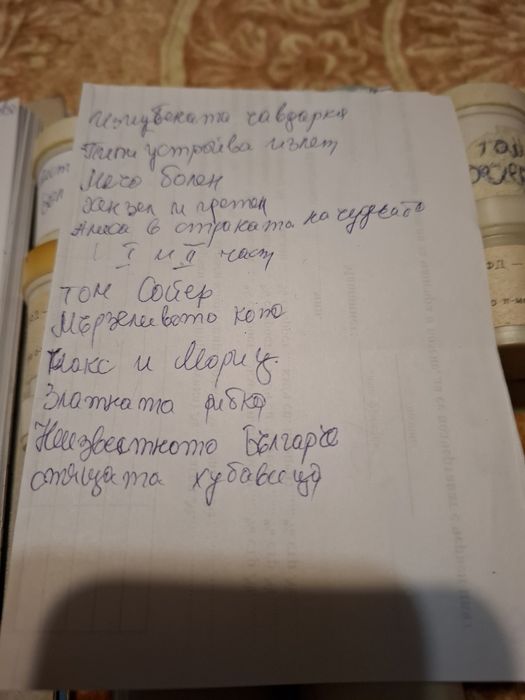 Изгубената чавдарка
Пипи устройва излет
Мечо болен
Хензел и гретел
Алиса в страната на чудесата
I и II част
Том Сойер
Мързеливото кото
Макс и Мориц
Златната рибка
Неизвестното Българче
спящата хубавица
том
сойер